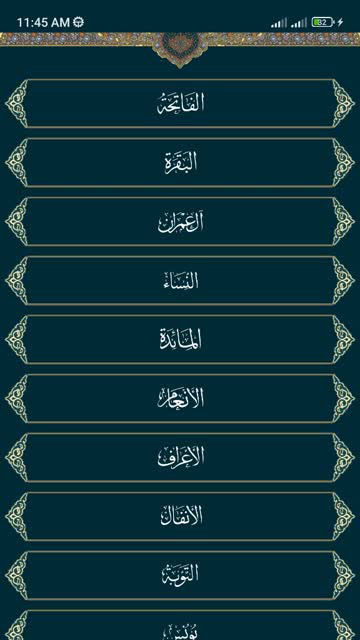 11:45 AM
82
الفَاتِحَةُ
البَقَرَة
آل عِمْرَان
النِّسَاء
المَائدَة
الأنعَام
الأعرَاف
الأنفَال
التَّوبَة
يُونُس